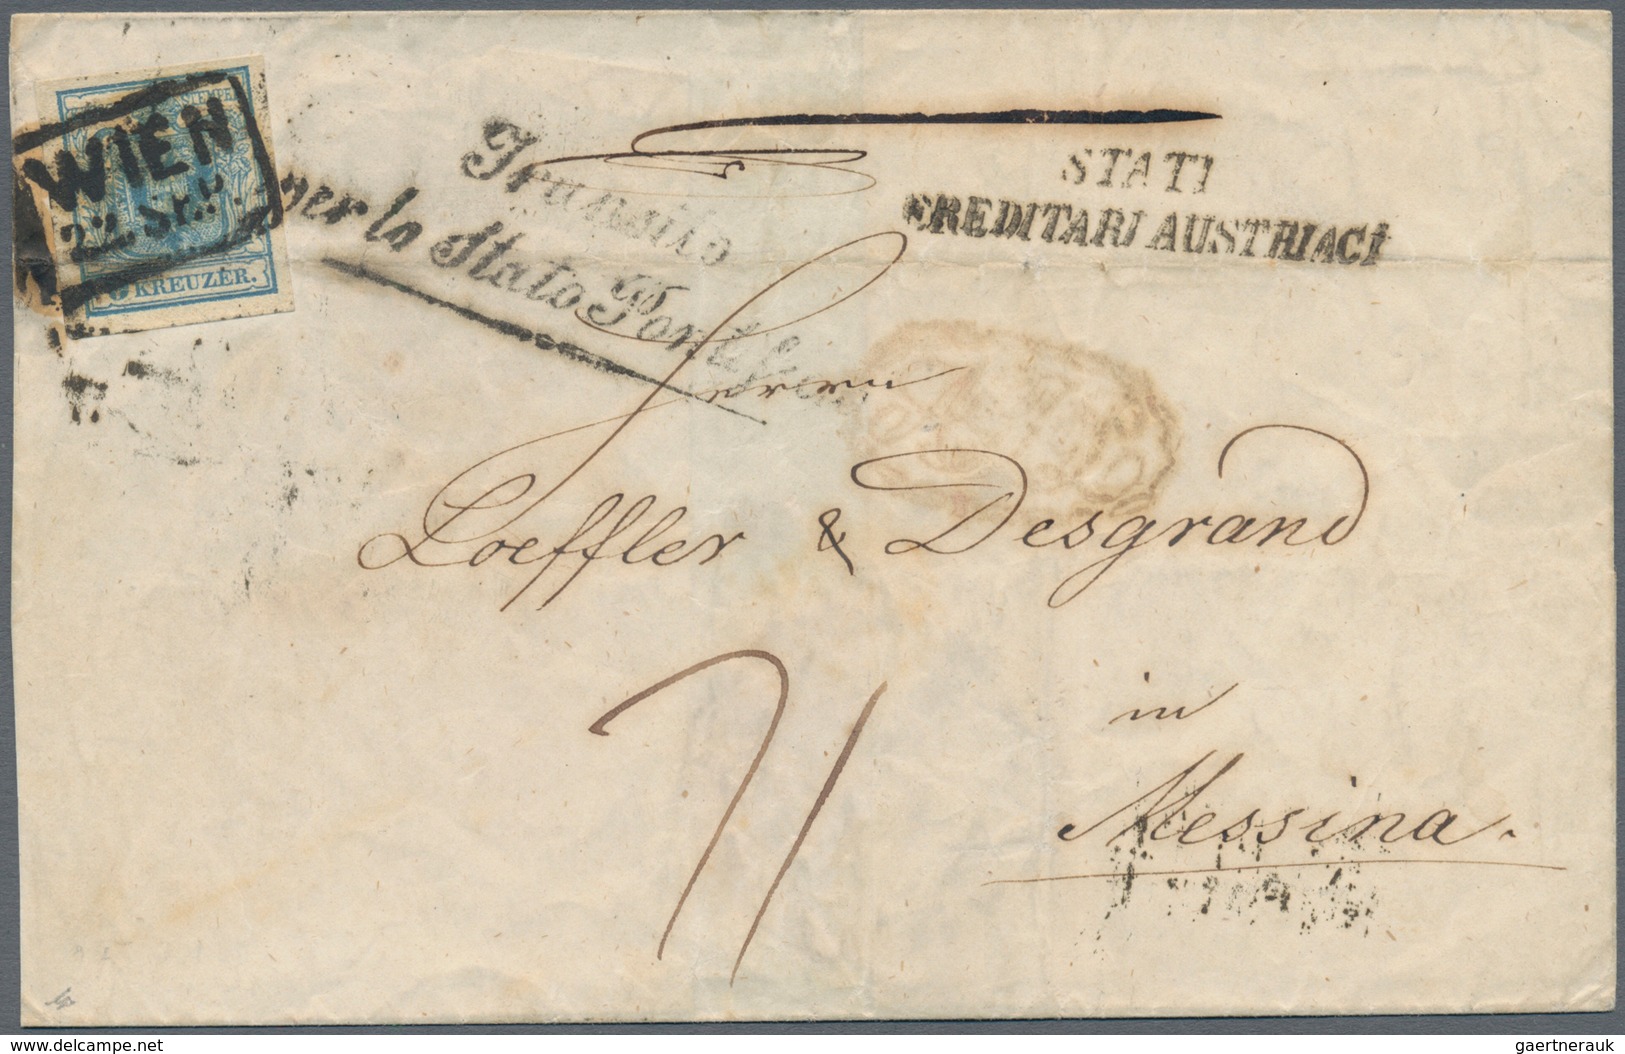 WIEN
22. SEP.
KREUZER.
Transito
per lo Stato Pontificio
STATI
EREDITARI AUSTRIACI
Herrn
Loeffler & Desgrand
in
Messina.
www.delcampe.net
gaertnerauk